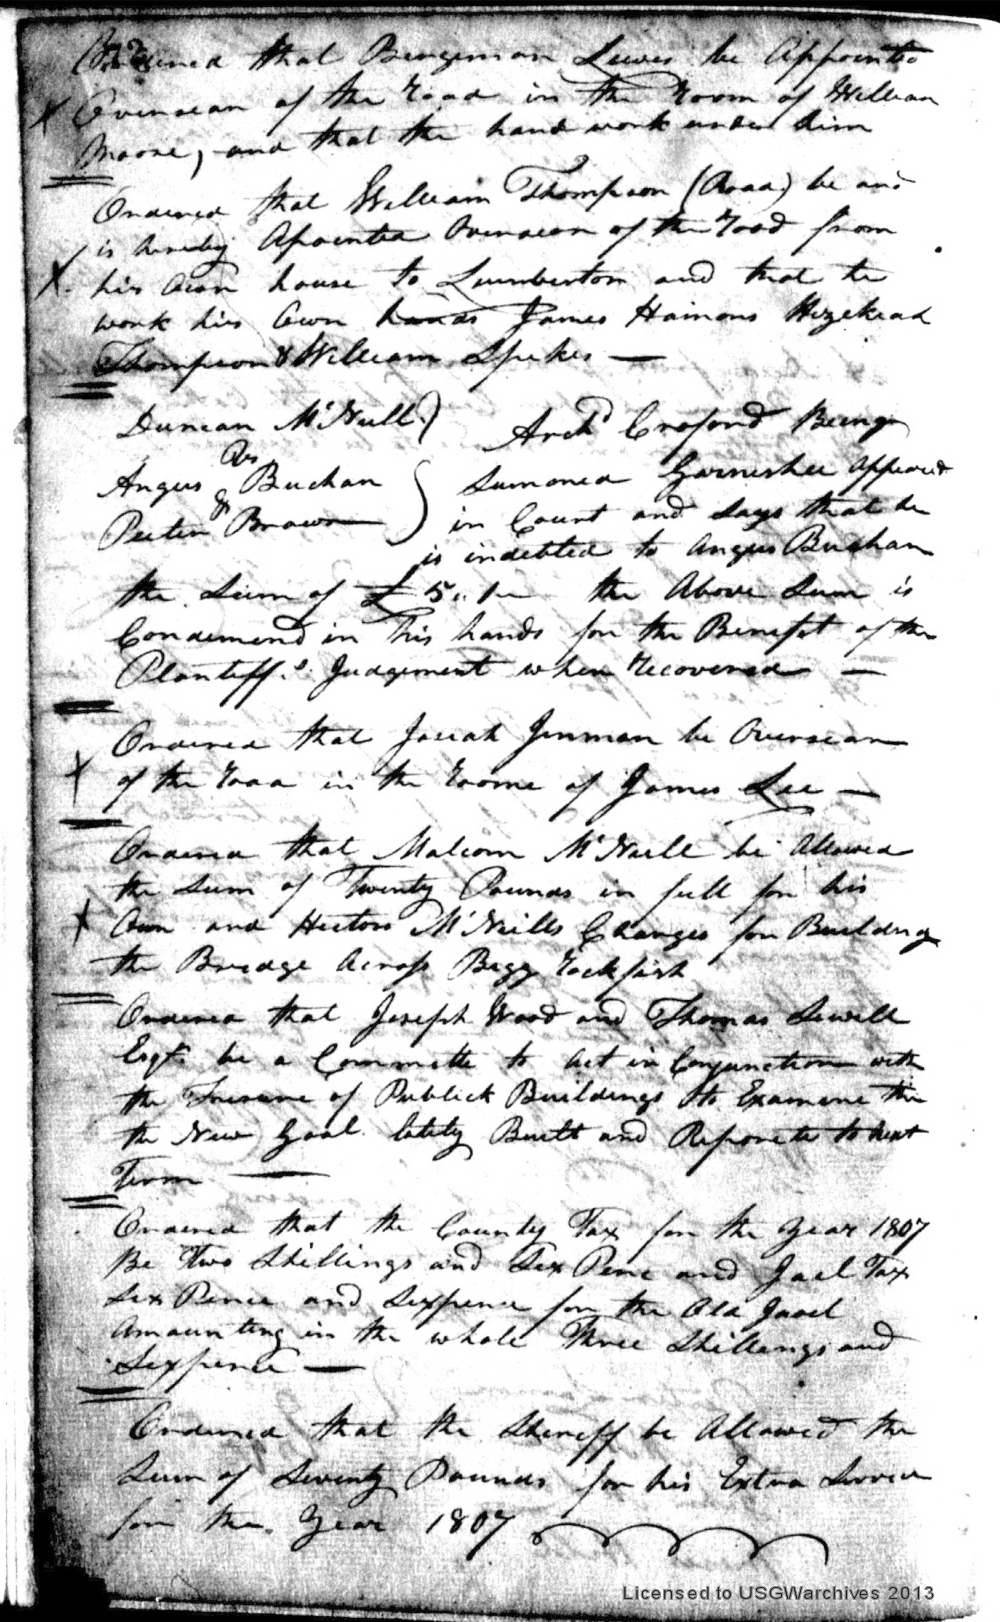 Ordered that Bengeman Lewis be Appointed
Overseear of the road in the room of William
Moore, and that the hand work under him
Ordered that William Thompson (Road) be and
is hereby Apointed Overseear of the road from
his Own house to Lumberton and that he
work his Own hands James Hamons Hezekead
Thompson & William Spikes —
Duncan McNeill ) Archd Croford Being
Vs
Angus Buchan ) Sumoned Garneshee Appeared
& Peeter Brown in Court and Says that he
is indebted to Angus Buchan
the Sum of £ 5 the Above Sum is
Condemend in his hands for the Benefit of the
Plantiffs Judgement when recovered —
Ordered that Josiah Jinman be Overseear
of the road in the roome of James Lee —
Ordered that Malcom McNeill be Allowed
the Sum of Twenty Pounds in full for his
Own and Hector McNeills Charges for Building
the Bridge Across Bigg rockfish
Ordered that Joseph Wood and Thomas Sewell
Esqrs be a Committe to Act in Conjunction with
the of Publick Buildings to Examine the
the New Goal lately Built and Reporte to next
Term —
Ordered that the County Tax for the Year 1807
Be Two Shillings and Six Pence and Jael Tax
Six Pence and Sixpence for the Old Jael
Amounting in the whole Three Shillings and
Sixpence —
Ordered that the Sheriff be Allowed the
Sum of Seventy Pounds for his Extra Service
for the Year 1807
Licensed to USGWarchives 2013